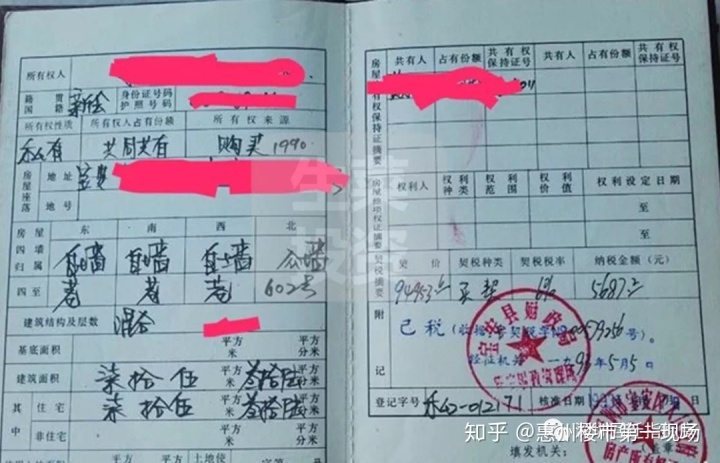 所有权人
籍贯 国籍 新会 身份证号码 护照号码
所有权性质 所有权人占有份额 所有权来源
私有 共同共有 购买1990
房屋座落 地址 宝安
地号
房屋 东 南 西 北
四墙归属 自墙 自墙 自墙 公墙
四至 巷 巷 巷 602号
建筑结构及层数 混合
基底面积 平方米 平方分米
建筑面积 柒拾伍 平方米 叁拾陆 平方分米
其中 住宅 柒拾伍 平方米 叁拾陆 平方分米
非住宅 平方米 平方分米
土地使 平方 平方
房屋共有权保持证摘要 共有人 占有份额 共有权保持证号 共有人 占有份额 共有权保持证号
房屋他项权证摘要 权利人 权利种类 权利范围 权利价值 权利设定日期
至
至
契税摘要 契价 契税种类 契税税率 纳税金额(元)
买契 6% 5687
附记
已税(收据
号)。
验证机关 一九9 年5月5日
宝安县财政局
登记字号 私42-012171 核准日期
填发机关:
知乎 @惠州楼市第一现场
生菜投资